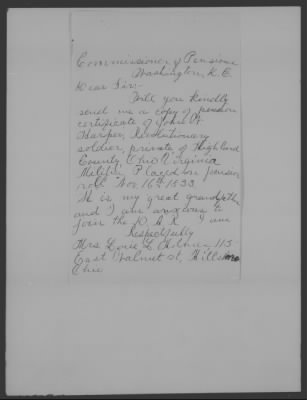 Commissioner of Pensions
Washington, D.C.
Dear Sir:-
Will you kindly
send me a copy of pension
certificate of John
Harper, Revolutionary
soldier, private of Highland
County, Ohio Virginia
Militia Placed on pension
roll Nov. 16th 1833.
He is my great grandfather
and I am anxious to
join the D.A.R. I am
Respectfully
Mrs. L. 115-
East Walnut St, Hillsboro
Ohio